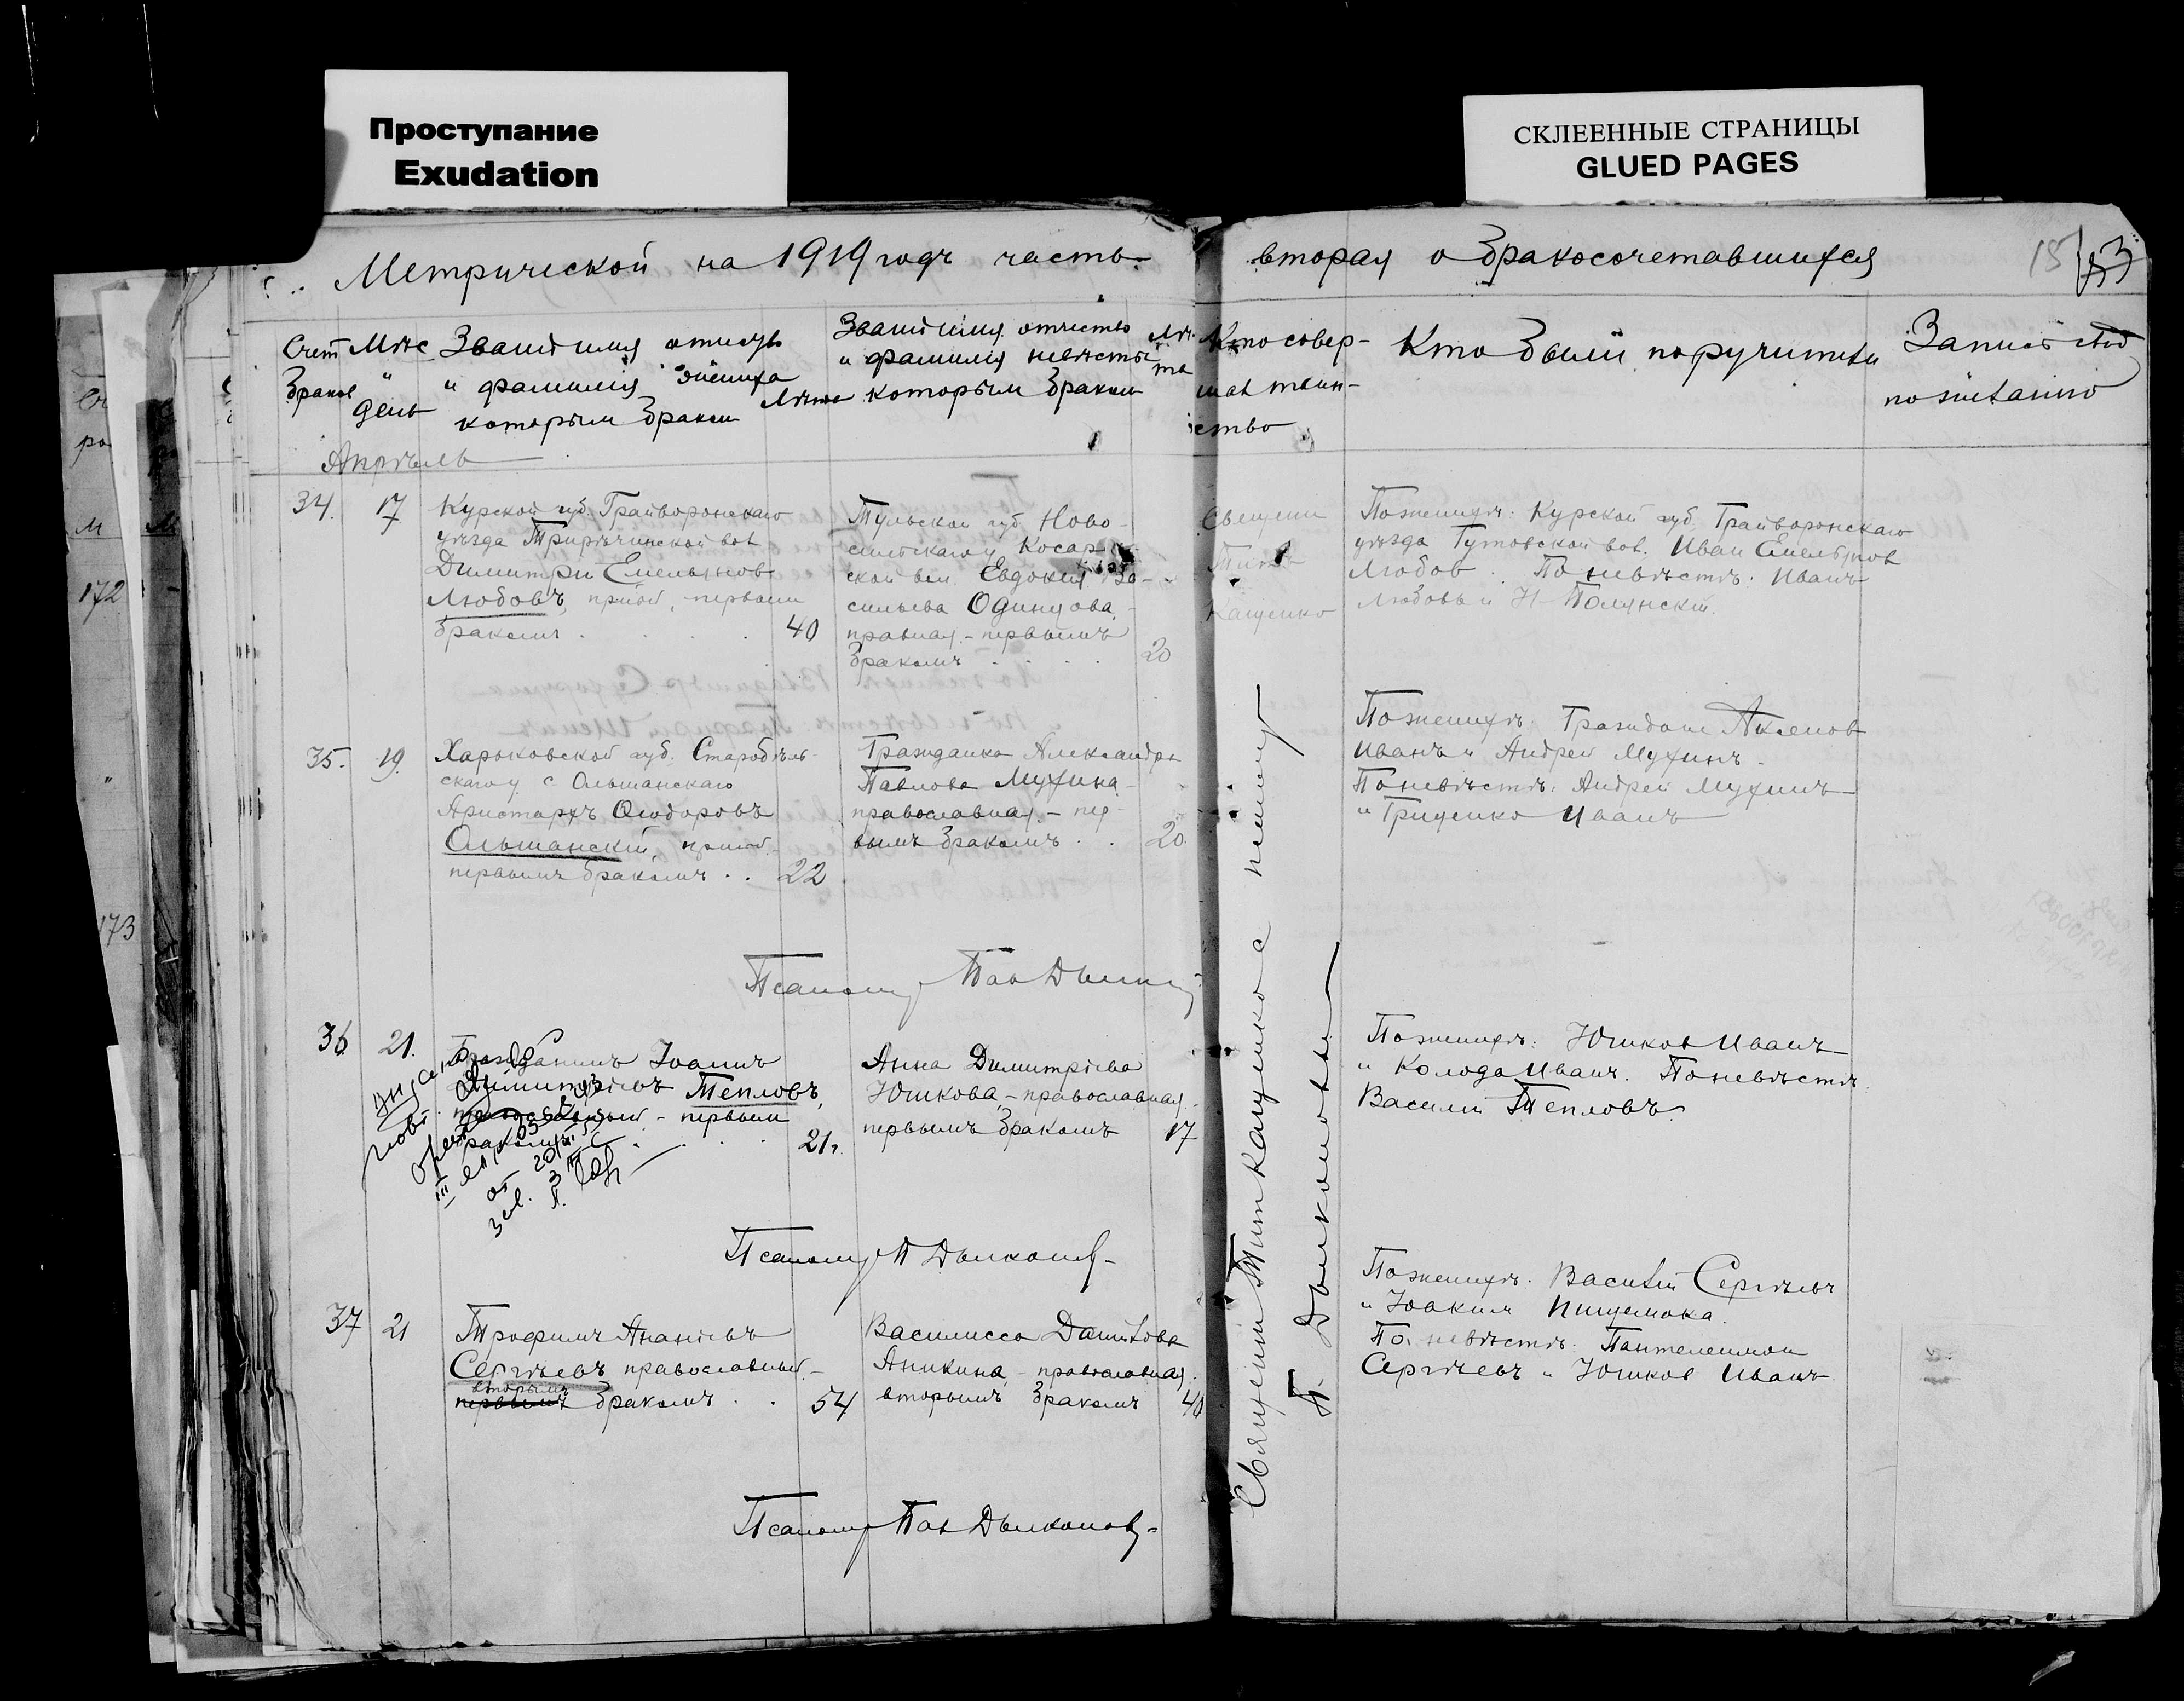 Проступание
Exudation
СКЛЕЕННЫЕ СТРАНИЦЫ
GLUED PAGES
Метрической на 1919 годъ часть
вторая о бракосочетавшихся
Счет
браков
Мѣс
и
день
Званіе имя отчеств
и фамилія жениха
которым браком
Лѣта
Званіе имя отчество
и фамилія невѣсты
которым браком
Лѣ-
та
Кто совер-
шал таин-
ство
Кто были поручители
Запись
по желанию
Апрѣль
34. 17
Курской губ. Грайворонскаго
уѣзда вол
Димитрій Емельянов
Любовъ, первым
браком 40
Тульской губ. Ново-
сильскаго у. Косар
ской вол. Евдокия Ва-
сильева Одинцова
правная - первымъ
бракомъ 20
Священ
Титъ
Кащенко
По женихѣ: Курской губ. Грайворонскаго
уѣзда вол. Иван Емельянов
Любов По невѣстѣ: Иванъ
Любовь и Полянскій.
35. 19.
Харьковской губ. Старобѣль-
скаго у. с Ольшанскаго
Аристархъ Ѳеодоровъ
Ольшанскій,
первымъ бракомъ . . 22
Гражданка Александра
Павлова Мухина
православная - пер-
вымъ бракомъ . . 20.
По женихѣ: Граждане Акленов
Иванъ и Андрей Мухинъ.
По невѣстѣ: Андрей Мухинъ
и Гриценко Иванъ
Псаломщ Пав
36 21.
Гражданинъ Іоаннъ
Димитріевъ Тепловъ,
православный - первым
бракомъ 21 г.
Анна Димитріева
Юшкова - православная
первымъ бракомъ 17
По женихѣ: Юшков Иванъ
и Колода Иванъ. По невѣстѣ
Василій Тепловъ
Псаломщ П Дьяконов
37 21
Трофимъ Ананіевъ
Сергѣевъ православный -
вторымъ
первымъ бракомъ . . 54
Василисса Данилова
Аникина - православная
вторымъ бракомъ 40
По женихѣ: Василій Сергѣевъ
и Іоаким
По невѣстѣ: Пантелеимон
Сергѣевъ и Юшков Иванъ
Псаломщ Пав Дьяконов
Священ Тит Кащенко с псаломщ
П. Дьяконовым
172
173